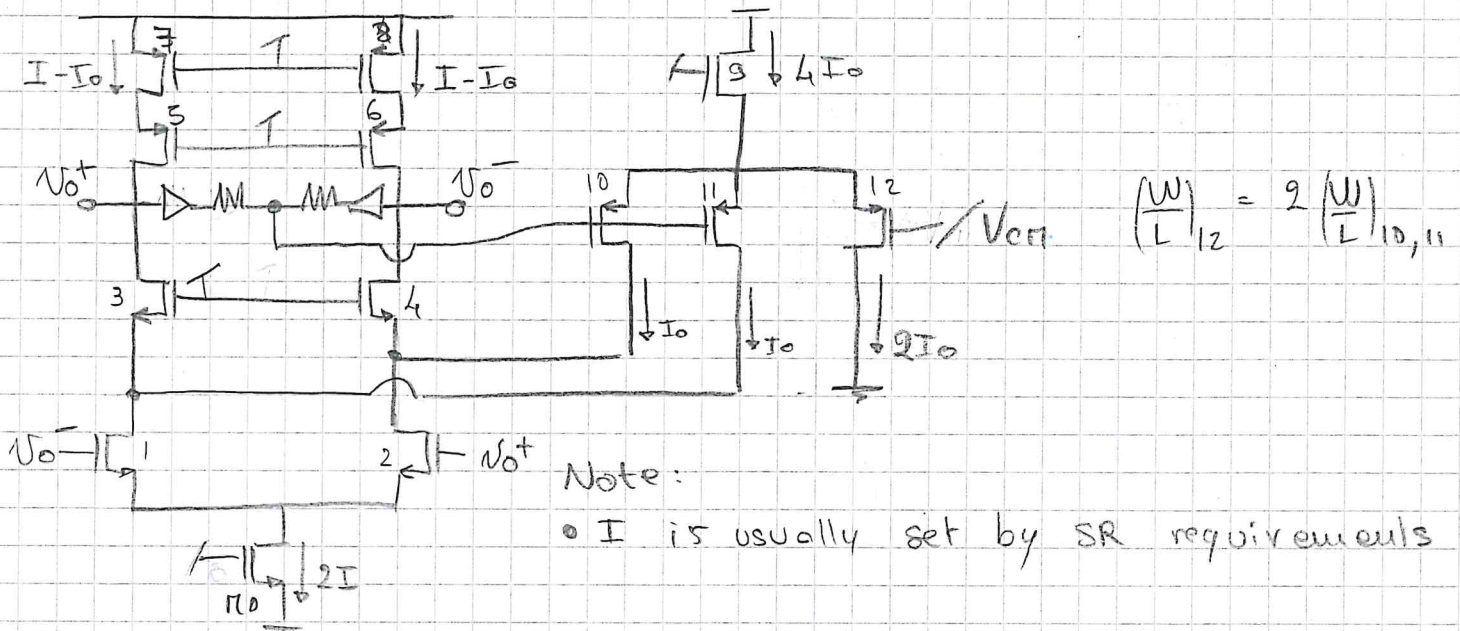 7 8
I-I₀ I-I₀
9 4I₀
5 6
V₀⁺ V₀⁻
10 11 12
V_CM
(W/L)₁₂ = 2 (W/L)₁₀,₁₁
3 4
I₀ I₀ 2I₀
V₀⁻ 1 2 V₀⁺
Note:
• I is usually set by SR requirements
M0 2I